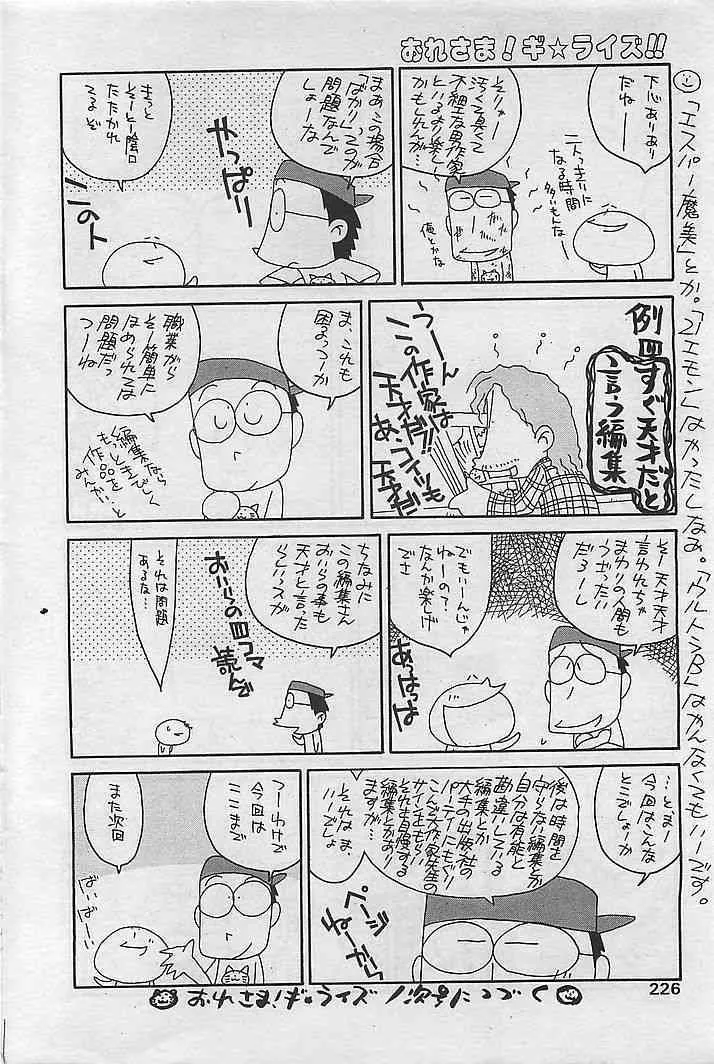 おれさま！ギ☆ライズ!!
「エスパー魔美」とか。「21エモン」はやったしなぁ。「ウルトラB」はやんなくてもいーです。
下心ありあり
だねー
二人っきりに
なる時間
多いもんなー
そりゃー
汚くて臭くて
不細工な男作家
といるより楽しい
かもしれんが…
俺とかな
まあこの場合
「ばかり」ってのが
問題なんで
しょーな
やっぱり
きっと
そーとー陰口
たたかれ
てるぞ
このト
例四
すぐ天才だと
言う編集
うーん
この作家は
天才だ!!
あ、コイツも
天才だ
ま、これも
困るっつーか
職業がら
そー簡単に
ほめられては
問題だっ
つーね
編集なら
もっときびしく
作品を
みんかい…と
そー天才天才
言われちゃ
まわりの人間も
うざったい
だろーし
でもいーんじゃ
ねーの？
なんか楽しげ
でさ
あっはっはっ
ちなみに
この編集さん
おいらの事も
天才と言った
らしいっスが
おいらの四コマ
読んで
それは問題
あるな…
…とまー
今回はこんな
とこでしょーか
後は時間を
守らない編集とか
自分は有能と
勘違いしている
編集とか
大手の出版社の
パーティにもぐり
こんで大作家先生の
サインもらい
それを自慢する
編集とかあり
ますが…
それはま、
いーでしょ
ページ
ねーから
つーわけで
今回は
ここまで
また次回
ばいばーい
おれさま！ギ☆ライズ／次号につづく
226